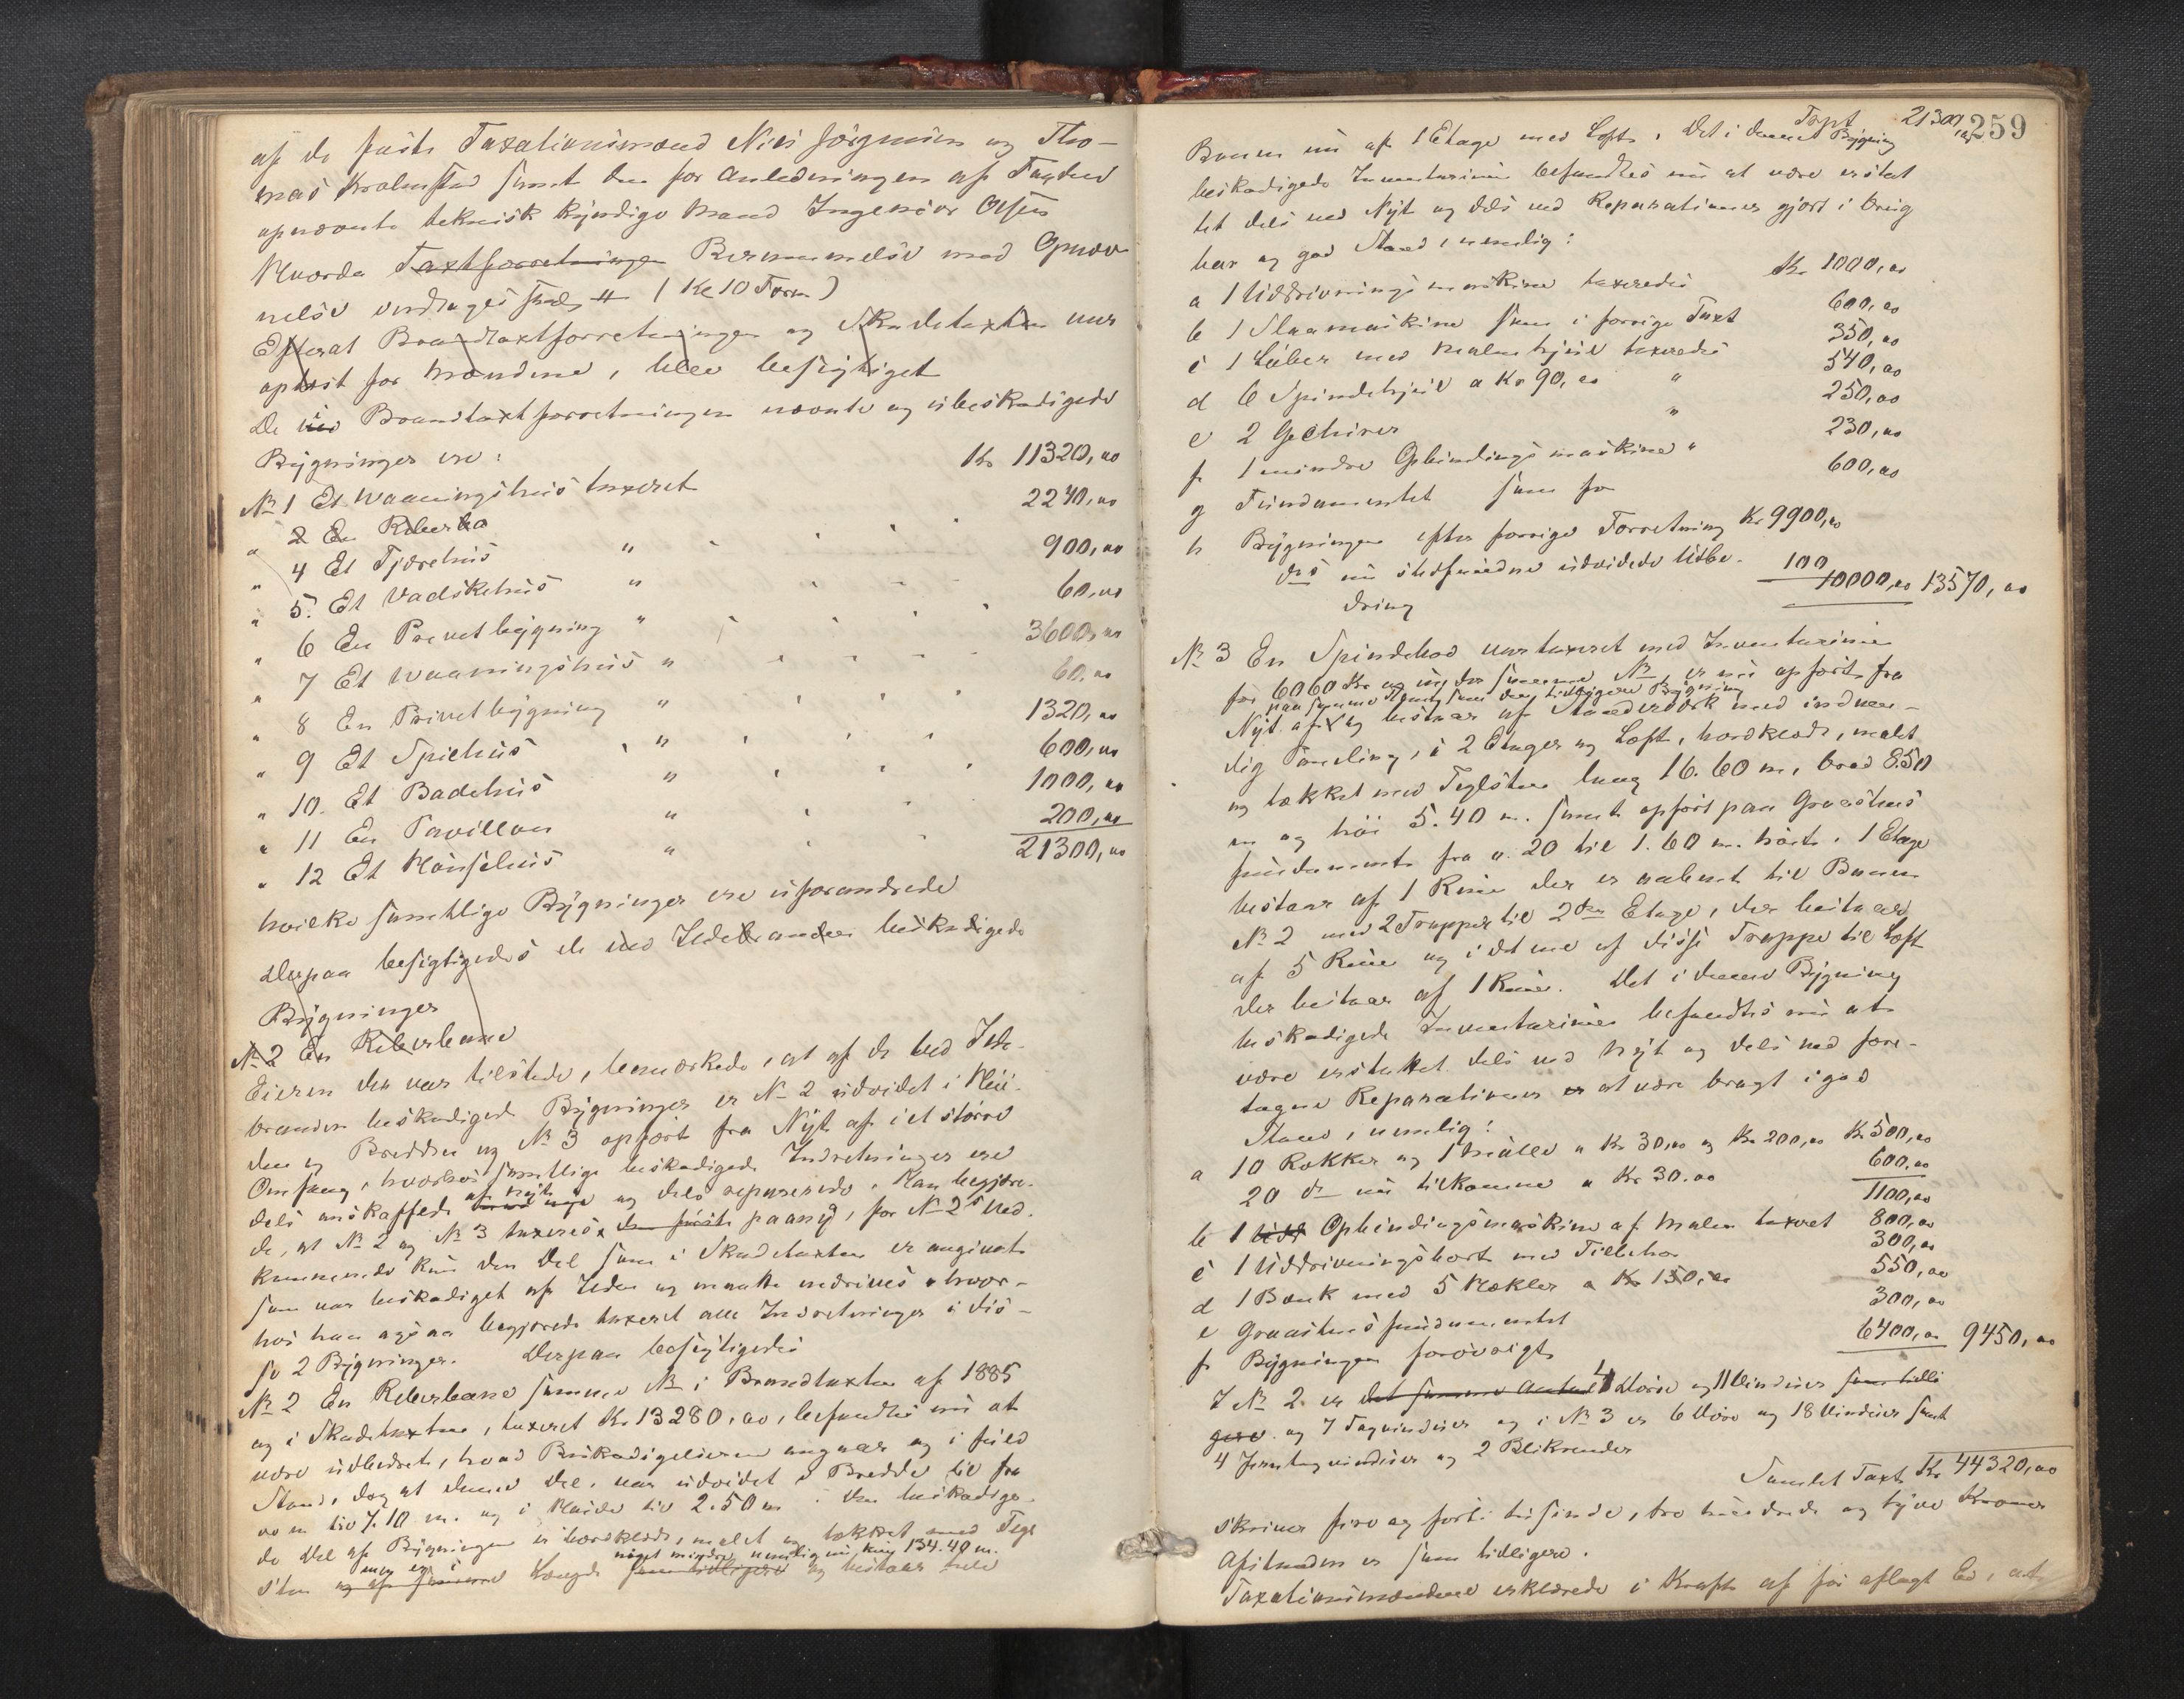 af de faste Taxationsmænd Nils Jørgensen og Tho-
mas Kvalmstad samt den for Anledningen af Fogden
opnævnte teknisk kyndige Mand Ingeniør Olsen
Hvorda Taxtforretningen Berammelse med Opnæv-
nelse vedtages (Kl 10 Form)
Efterat Brandtaxtforretningen og Skadetaxten var
oplæst for Mændene, blev besigtiget
De i Brandtaxtforretningen nævnte og ubeskadigede
Bygninger ere:
No 1 Et Waaningshus taxeret Kr 11320,00
" 2 En Reberba 2240,00
" 4 Et Tjærehus " 900,00
" 5. Et Vadskehus " 60,00
" 6 En Privetbygning " 3600,00
" 7 Et Waaningshus " 60,00
" 8 En Privetbygning " 1320,00
" 9 Et Spiehus " 600,00
" 10. Et Badehus " 1000,00
" 11 En Pavillon " 200,00
" 12 Et Hønsehus " 21300,00
hvilke samtlige Bygninger ere uforandrede
Derpaa besigtigedes de ved Ildebranden beskadigede
Bygninger
No 2 En Reberbane
Eieren der var tilstede, bemærkede, at af de ved Ilde-
branden beskadigede Bygninger er No 2 udvidet i Høi-
den og Bredden og No 3 opført fra Nyt af i et større
Omfang, hvorhos samtlige beskadigede Indretninger ere
dels anskaffede af nyt og dels reparerede. Han begjære-
de, at No 2 og No 3 taxeres paany, for No 2s Ved-
kommende kun den Del som i Skadetaxten er angivet
som var beskadiget af Ilden og maatte nedrives, hvor-
hos han ogsaa begjærede taxeret alle Indretninger i dis-
se 2 Bygninger. Derpaa besigtigedes
No 2 En Reberbane samme No i Brandtaxten af 1885
og i Skadetaxten, taxeret Kr 13280,00, befandtes nu at
være udbedret, hvad Beskadigelserne angaar og i fuld
Stand, dog at denne Del, var udvidet i Bredde til fra
00 m til 7.10 m. og i Høide til 2.50 m. Den beskadige-
de Del af Bygningen er bordklædt, malet og tækket med Tegl
noget mindre nemlig nu kun 134.40 m.
sten og af samme Længde som tidligere og bestaar hele
Taxt 21300,00 259
Banen nu af 1 Etage med Loft. Det i denne Bygning
beskadigede Inventarium befandtes nu at være erstat
tet dels ved Nyt og dels ved Reparationer gjort i brug
bar og god Stand, nemlig:
a 1 Uddrivningsmaskine taxeredes Kr 1000,00
b 1 Slaamaskine som i forrige Taxt 600,00
c 1 Løber med Malmhjul taxeredes 350,00
d 6 Spindehjul a Kr 90,00 " 540,00
e 2 Gechirer " 250,00
f 1 mindre Opbindingsmaskine " 230,00
g Fundamentet som før 600,00
h Bygningen efter forrige Forretning Kr 9900,00
des nu stedfundne udvidede Udbe- 100
dring 10000,00 13570,00
No 3 En Spindebod var taxeret med Inventarium
for 6060 Kr og under samme No er nu opført fra
paa samme Tomt som den tidligere Bygning
Nyt af og bestaar af Stænderværk med indven-
dig Paneling, i 2 Etager og Loft, bordklædt, malet
og tækket med Teglsten lang 16.60 m, bred 8.50
m og høi 5.40 m. samt opført paa Graastens
fundament fra 0.20 til 1.60 m. høit. 1 Etage
bestaar af 1 Rum der er aabent til Banen
No 2 med 2 Trapper til 2den Etage, der bestaar
af 5 Rum og i det ene af disse Trappe til Loft
der bestaar af 1 Rum. Det i denne Bygning
beskadigede Inventarium befandtes nu at
være erstattet dels ved Nyt og dels ved fore-
tagne Reparationer at være bragt i god
Stand, nemlig:
a 10 Rokker og 1 Mølle a Kr 30,00 og Kr 200,00 Kr 500,00
20 do nu tilkomne a Kr 30.00 600,00
1100,00
b 1 Opbindingsmaskine af Malm taxeret 800,00
c 1 Uddrivningsbort med Tilbehør 300,00
d 1 Bænk med 5 Hækler a Kr 150,00 550,00
e Graastensfundamentet 300,00
f Bygningen forøvrigt 6400,00 9450,00
I No 2 er det samme Antal 4 Døre og 11 Vinduer som tidli
gere. og 7 Tagvinduer og i No 3 er 6 Døre og 18 Vinduer samt
4 Jerntagvinduer og 2 Blikrender
Samlet Taxt Kr 44320,00
Skriver fire og forti tusinde, tre hundrede og tyve Kroner
Afstanden er som tidligere.
Taxationsmændene erklærede i Kraft af før aflagt Ed, at